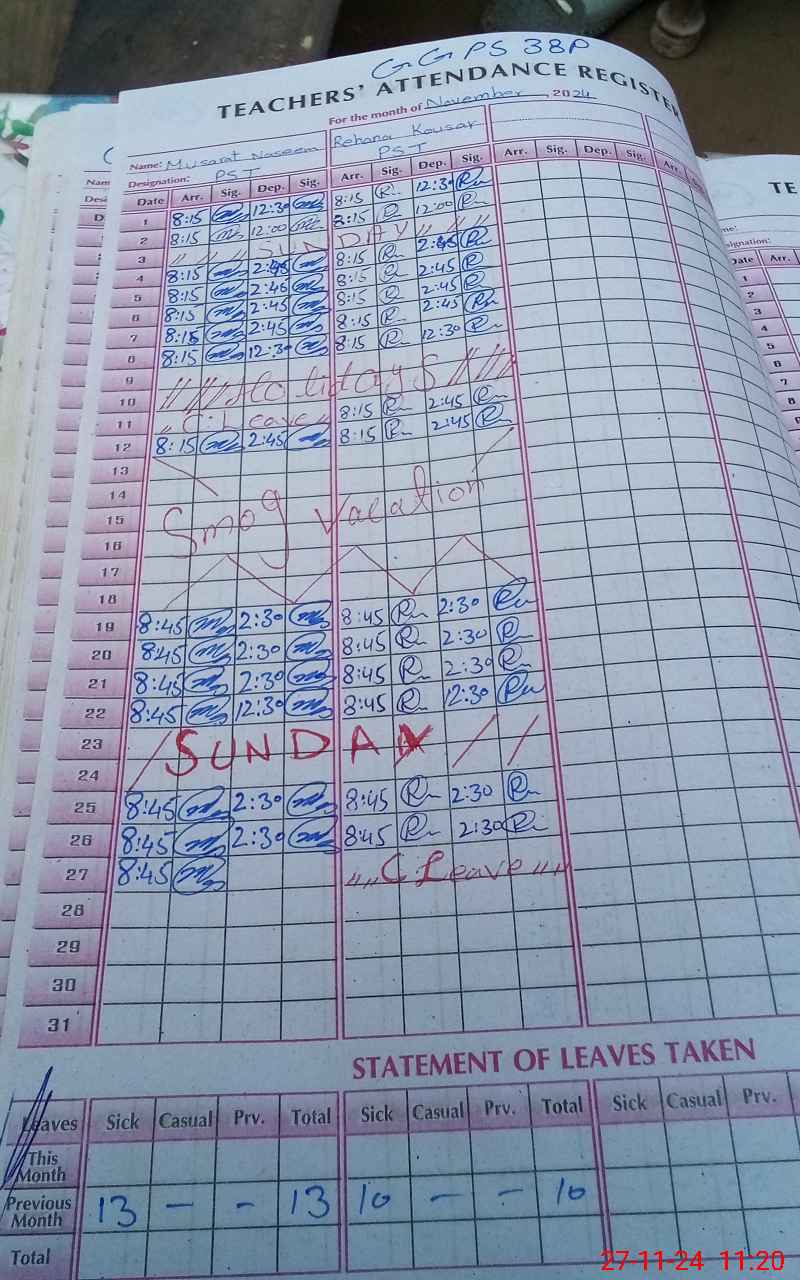 G G PS 38P
TEACHERS' ATTENDANCE REGISTER
For the month of November, 2024
Name: Musarat Naseem Rehana Kousar
Designation: PST PST
Date Arr. Sig. Dep. Sig. Arr. Sig. Dep. Sig. Arr. Sig. Dep. Sig. Arr.
1 8:15 12:30 8:15 12:30
2 8:15 12:00 8:15 12:00
3 SUNDAY
4 8:15 2:45 8:15 2:45
5 8:15 2:45 8:15 2:45
6 8:15 2:45 8:15 2:45
7 8:15 2:45 8:15 2:45
8 8:15 12:30 8:15 12:30
9 Holidays
10
11 C. Leave 8:15 2:45
12 8:15 2:45 8:15 2:45
13
14
15 Smog Vacation
16
17
18
19 8:45 2:30 8:45 2:30
20 8:45 2:30 8:45 2:30
21 8:45 2:30 8:45 2:30
22 8:45 12:30 8:45 12:30
23 SUNDAY
24
25 8:45 2:30 8:45 2:30
26 8:45 2:30 8:45 2:30
27 8:45 C Leave
28
29
30
31
STATEMENT OF LEAVES TAKEN
Leaves Sick Casual Prv. Total Sick Casual Prv. Total Sick Casual Prv.
This Month
Previous Month 13 - - 13 10 - - 10
Total
27-11-24 11:20